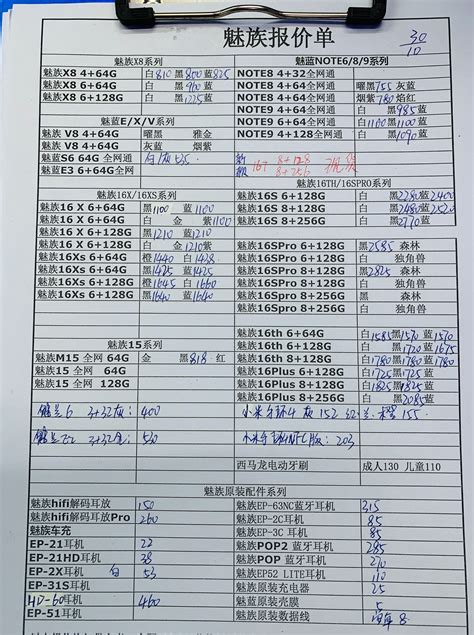 魅族报价单
30/10
魅族X8系列
魅族X8 4+64G 白810黑800蓝825
魅族X8 6+64G 白 黑960蓝
魅族X8 6+128G 白 黑1225蓝
魅蓝E/X/V系列
魅族 V8 4+64G 曜黑 雅金
魅族 V8 4+64G 灰蓝 烟紫
魅蓝S6 64G 全网通
魅蓝E3 6+64G 全网通
魅蓝NOTE6/8/9系列
NOTE8 4+32全网通
NOTE8 4+64全网通 曜黑755灰蓝
NOTE8 4+64全网通 烟紫780焰红
NOTE9 4+64全网通 白 黑985蓝
NOTE9 6+64全网通 白1100黑1100蓝
NOTE9 4+128全网通 白 黑1090蓝
16T 8+128
8+256 现货
魅族16X/16XS系列
魅族16 X 6+64G 黑1100蓝1100
魅族16 X 6+64G 白 金 1100紫
魅族16 X 6+128G 黑1210蓝1210
魅族16 X 6+128G 白 金1210紫
魅族16Xs 6+64G 橙1440白1428
魅族16Xs 6+64G 黑1425蓝1425
魅族16Xs 6+128G 橙1655白1645
魅族16Xs 6+128G 黑1640蓝1640
魅族16TH/16SPRO系列
魅族16S 6+128G 白 黑2280蓝2220
魅族16S 8+128G 白 黑2480蓝2520
魅族16S 8+256G 白 黑2770蓝
魅族16SPro 6+128G 黑2585 森林
魅族16SPro 6+128G 白 独角兽
魅族16SPro 8+128G 黑2825 森林
魅族16SPro 8+128G 白 独角兽
魅族16Spro 8+256G 黑 森林
魅族16Spro 8+256G 白 独角兽
魅族16th 6+64G 白1585黑1570蓝1570
魅族16th 6+128G 白 黑1720蓝1675
魅族16th 8+128G 白1780黑1780蓝1780
魅族16Plus 6+128G 白1725黑1725蓝
魅族16Plus 8+128G 白1825黑1825蓝
魅族16Plus 8+256G 白 黑 蓝
魅族15系列
魅族M15 全网 64G 金 黑818 红
魅族15 全网 64G
魅族15 全网 128G
魅蓝6 3+32灰: 400
3+32金: 530
小米手环4 灰 152 红. 兰. 155.
小米手环4NFC版: 203
西马龙电动牙刷 成人130 儿童110
魅族原装配件系列
魅族hifi解码耳放 150
魅族hifi解码耳放Pro 260
魅族车充
EP-21耳机 22
EP-21HD耳机 28
EP-2X耳机 白 53
EP-31S耳机
HD-60耳机 460
EP-51耳机
魅族EP-63NC蓝牙耳机 315
魅族EP-2C耳机 85
魅族EP-3C 耳机 85
魅族POP2 蓝牙耳机 285
魅族POP 蓝牙耳机 270
魅族EP52 LITE耳机 110
魅族原装充电器 25
魅蓝原装壳膜 5
魅族原装数据线